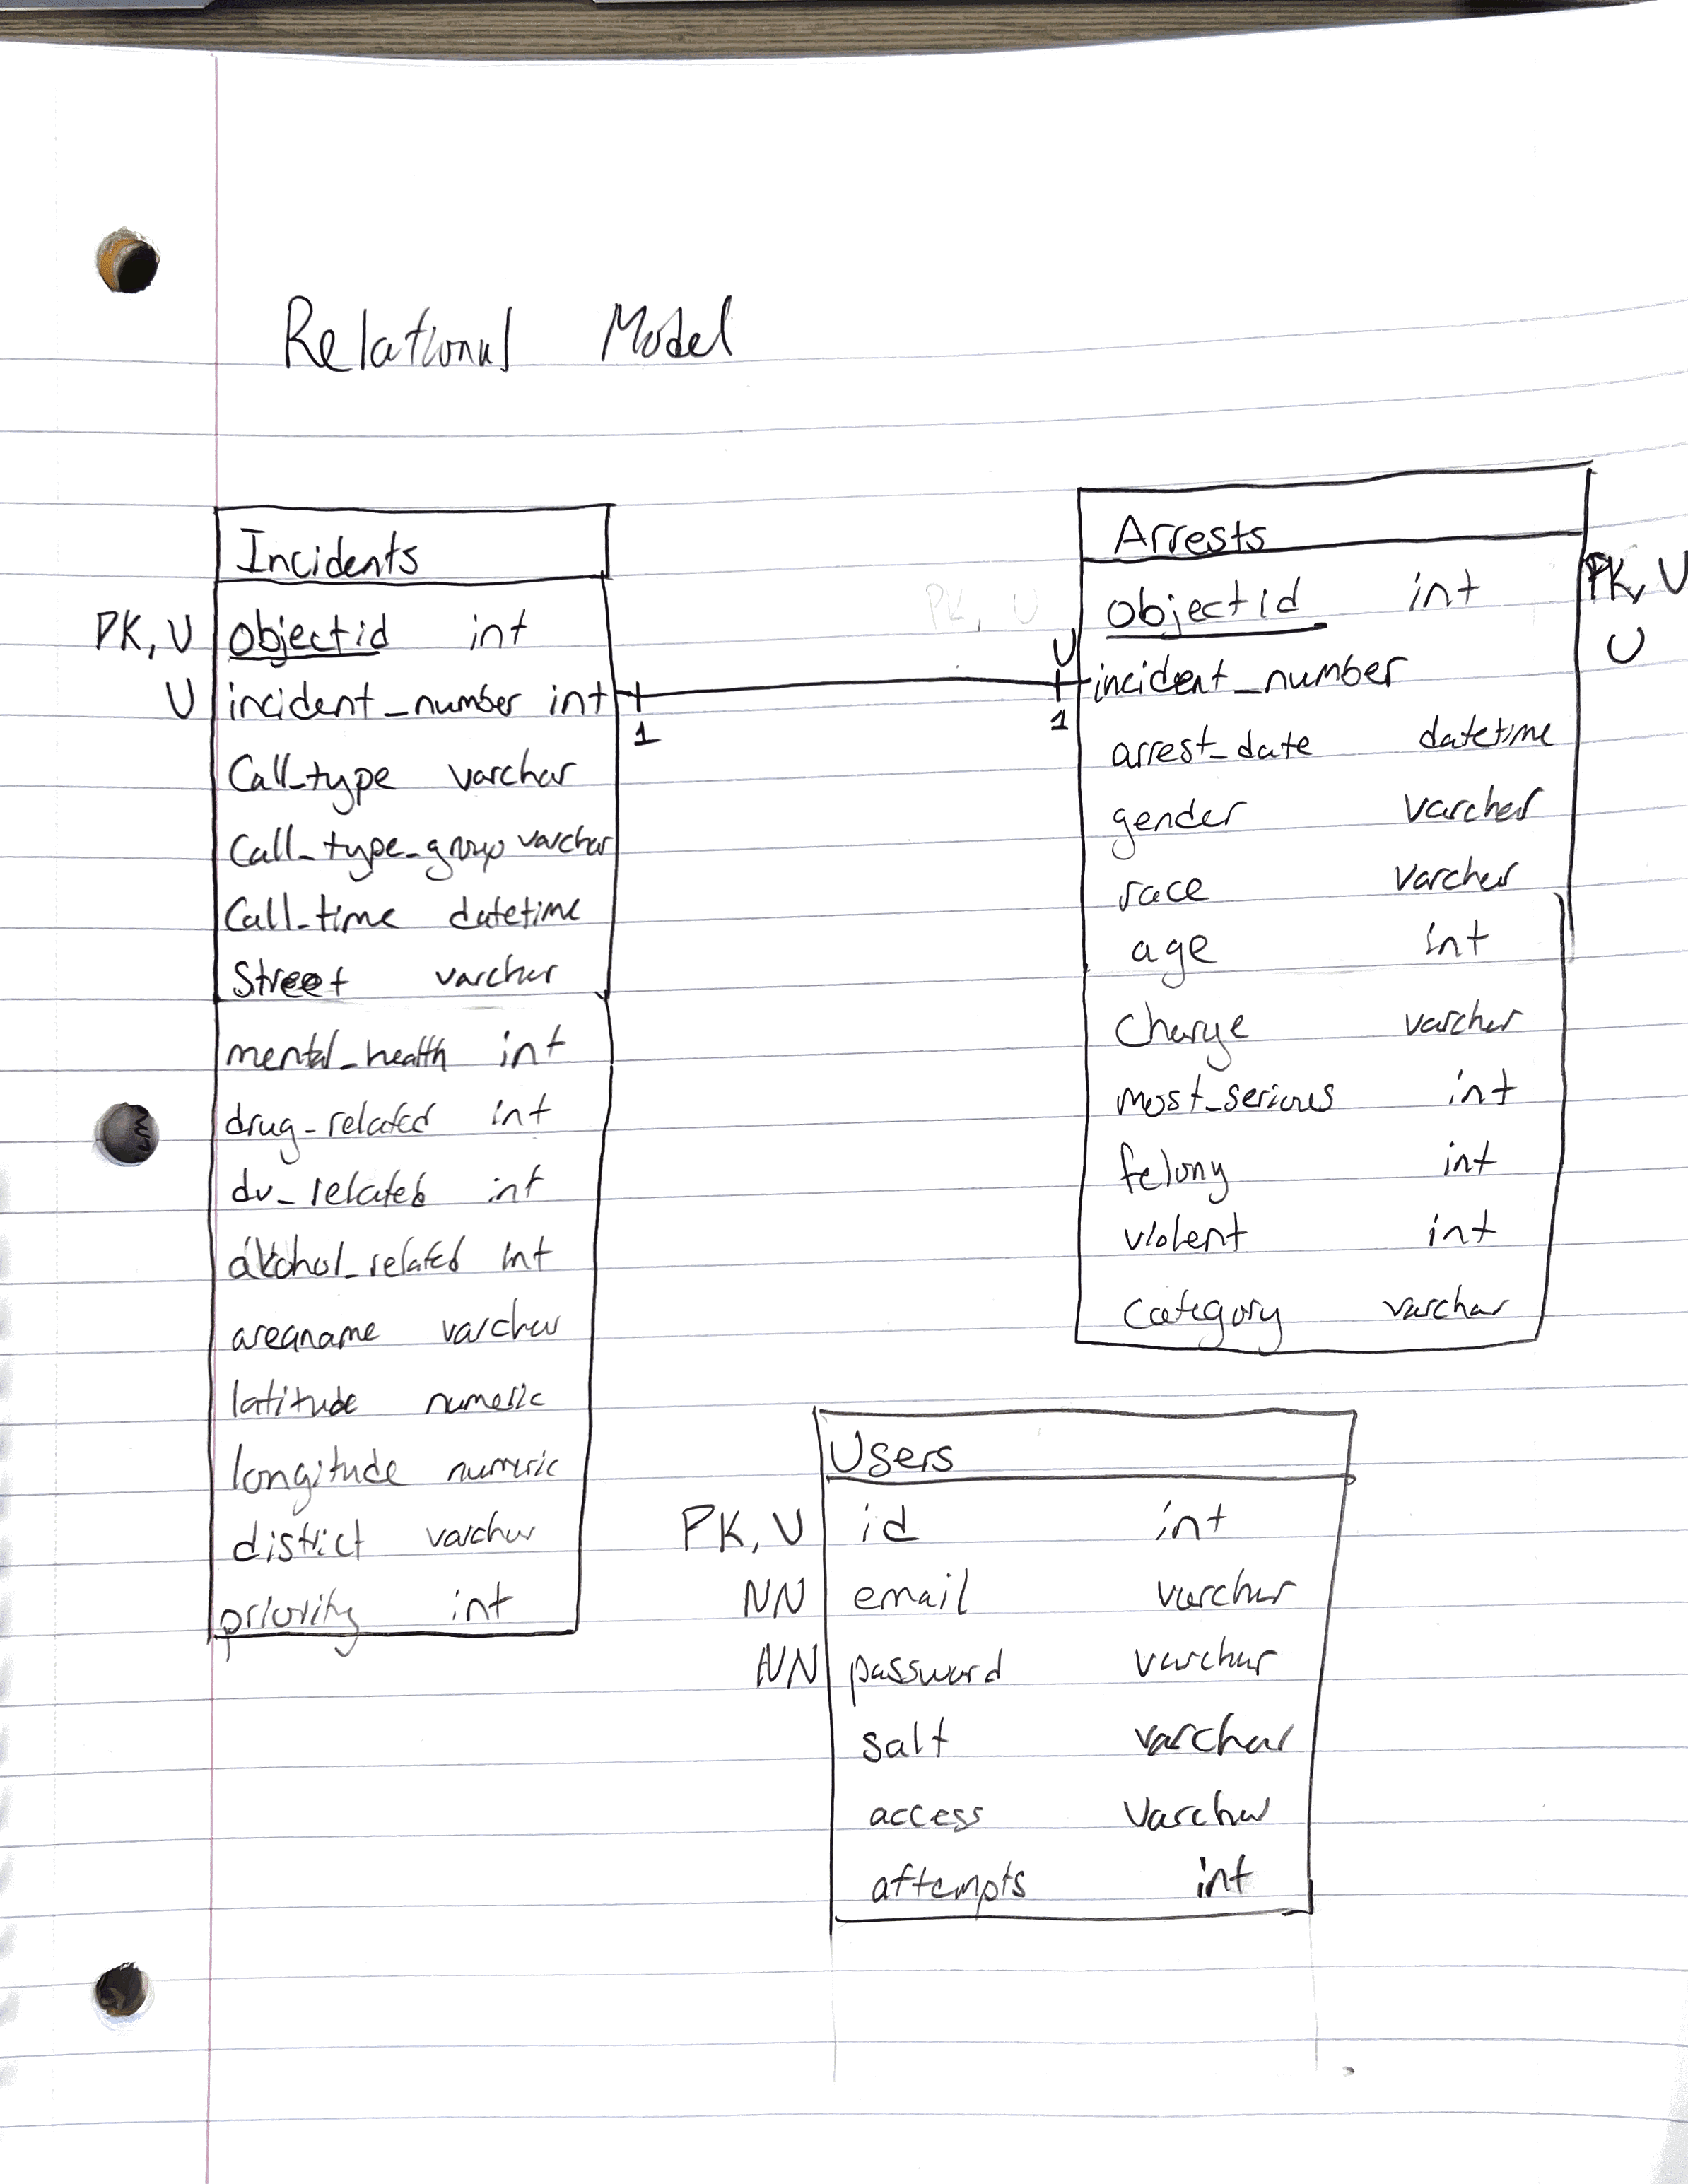 Relational Model
Incidents
PK, U objectid int
U incident_number int
1
Call_type varchar
Call_type_group varchar
Call_time datetime
Street varchar
mental_health int
drug_related int
dv_related int
alcohol_related int
areaname varchar
latitude numeric
longitude numeric
district varchar
priority int
Arrests
PK, U
objectid int PK, U
U incident_number U
1
arrest_date datetime
gender varchar
race varchar
age int
Charge varchar
most_serious int
felony int
violent int
Category varchar
Users
PK, U id int
NN email varchar
NN password varchar
salt varchar
access varchar
attempts int